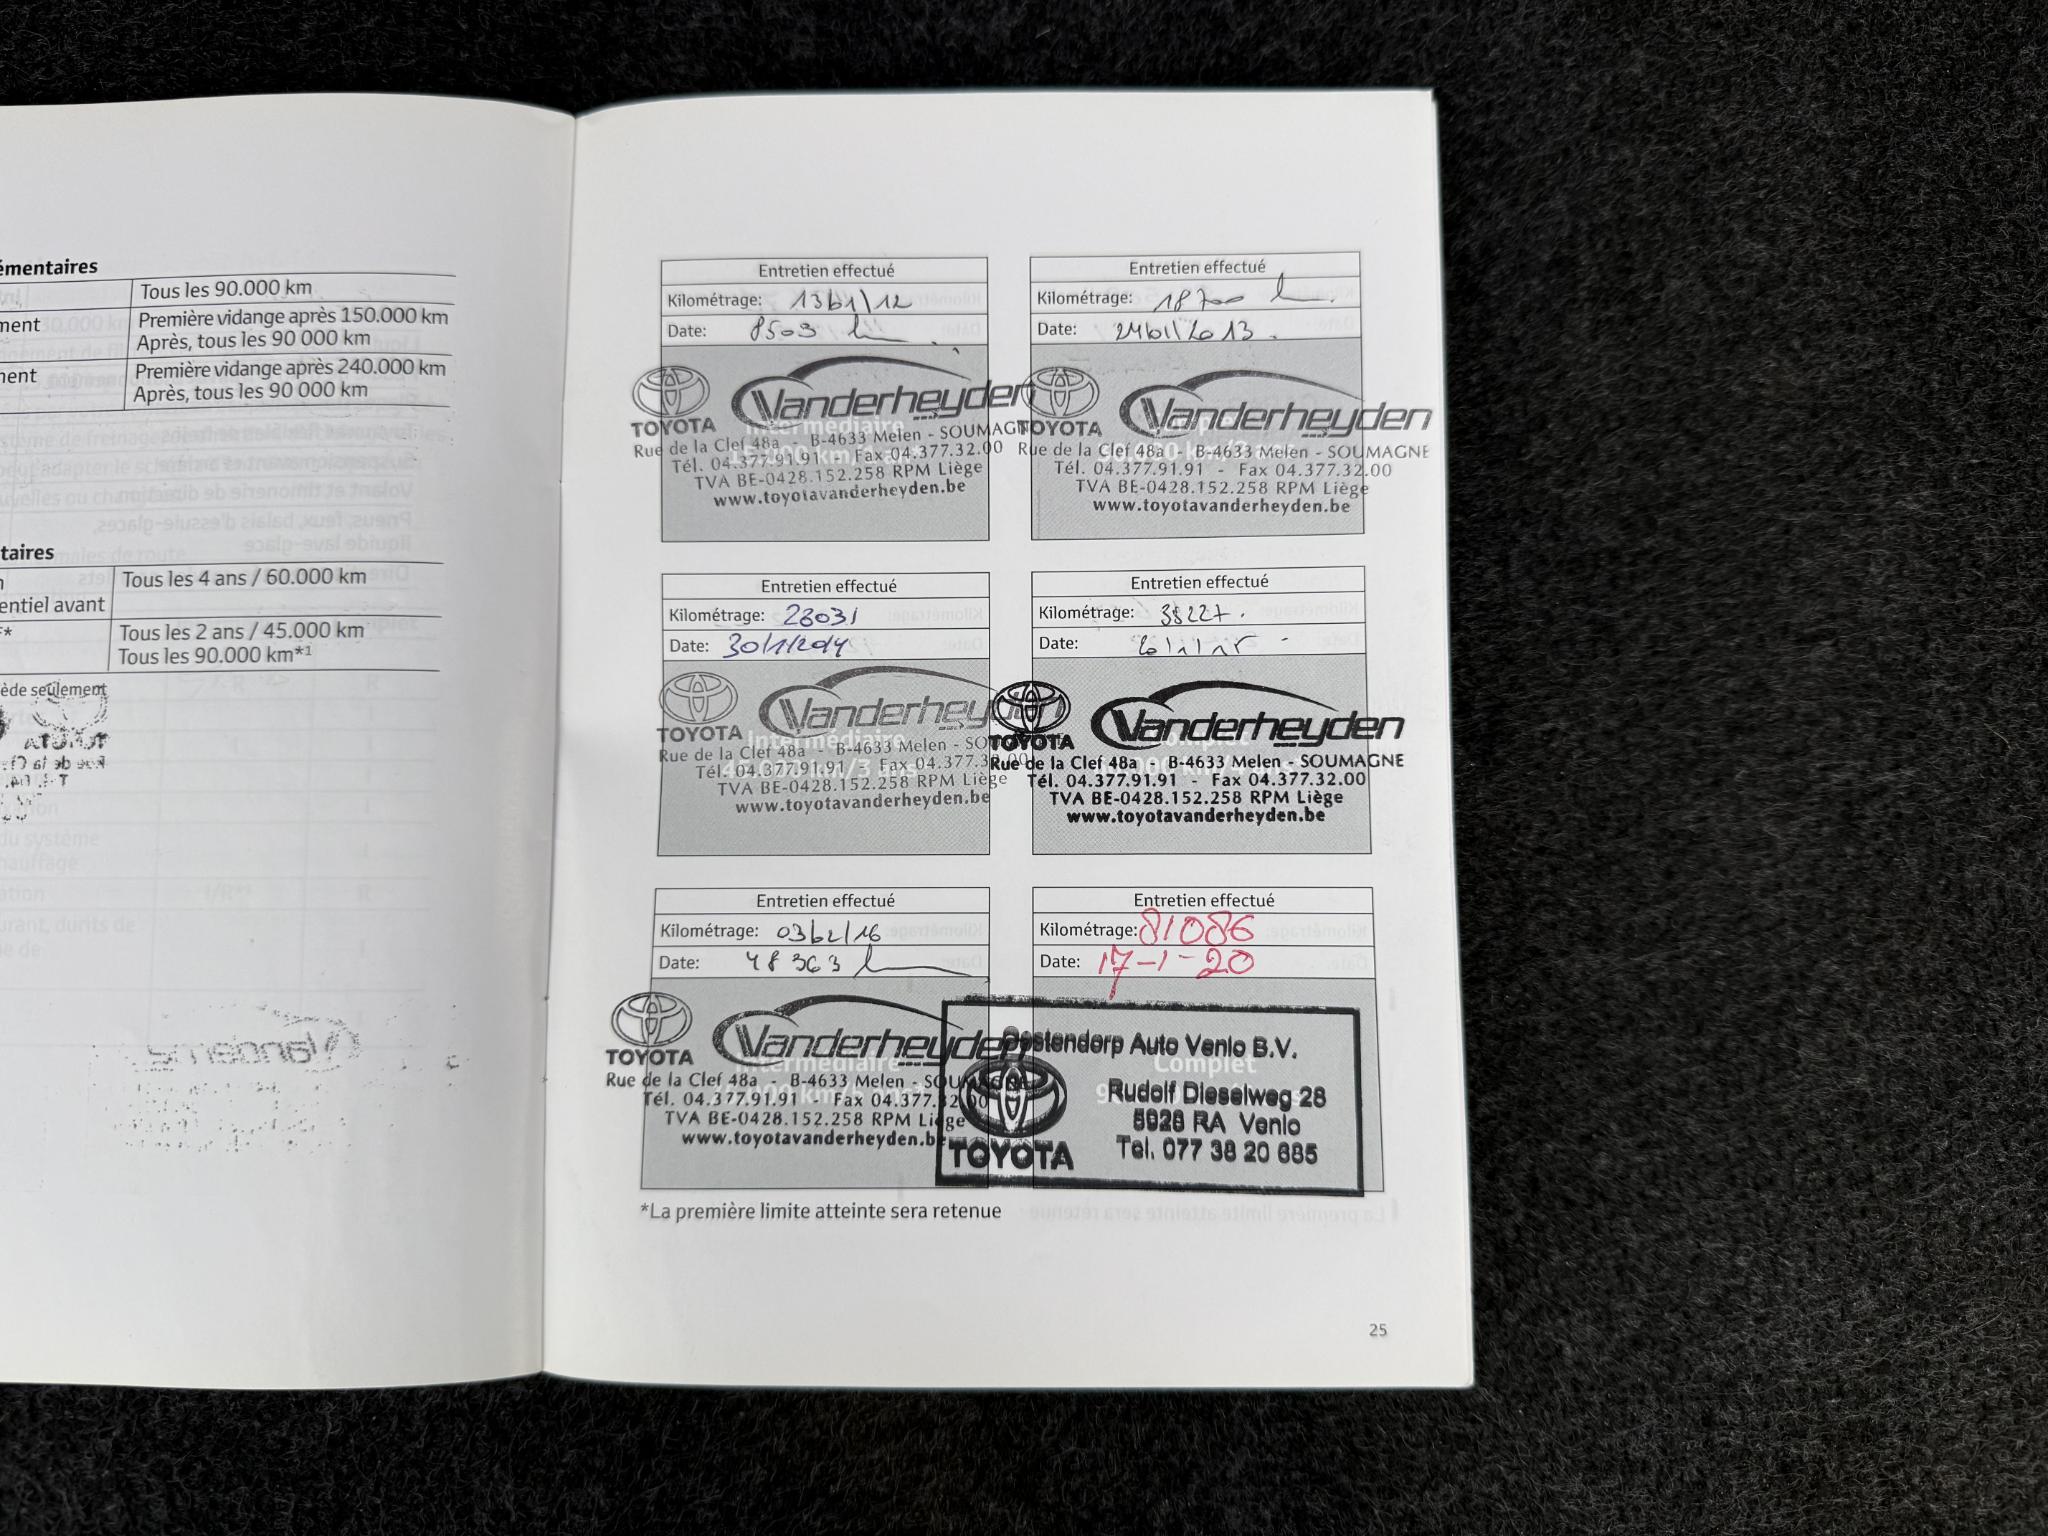 émentaires
Tous les 90.000 km
ment
Première vidange après 150.000 km
Après, tous les 90 000 km
nent
Première vidange après 240.000 km
Après, tous les 90 000 km
taires
Tous les 4 ans / 60.000 km
entiel avant
Tous les 2 ans / 45.000 km
Tous les 90.000 km*¹
ède seulement
Entretien effectué
Kilométrage: 13/01/12
Date: 8503
TOYOTA Vanderheyden
Rue de la Clef 48a - B-4633 Melen - SOUMAGN
Tél. 04.377.91.91 Fax 04.377.32.00
TVA BE-0428.152.258 RPM Liège
www.toyotavanderheyden.be
Entretien effectué
Kilométrage: 18700
Date: 24/01/2013.
TOYOTA Vanderheyden
Rue de la Clef 48a - B-4633 Melen - SOUMAGNE
Tél. 04.377.91.91 - Fax 04.377.32.00
TVA BE-0428.152.258 RPM Liège
www.toyotavanderheyden.be
Entretien effectué
Kilométrage: 28031
Date: 30/1/2014
TOYOTA Vanderheyden
Intermédiaire
Rue de la Clef 48a - B-4633 Melen - SO
Tél. 04.377.91.91 Fax 04.377.3
TVA BE-0428.152.258 RPM Liège
www.toyotavanderheyden.be
Entretien effectué
Kilométrage: 38227.
Date:
TOYOTA Vanderheyden
Complet
Rue de la Clef 48a - B-4633 Melen - SOUMAGNE
Tél. 04.377.91.91 - Fax 04.377.32.00
TVA BE-0428.152.258 RPM Liège
www.toyotavanderheyden.be
Entretien effectué
Kilométrage: 03/02/16
Date: 48363
TOYOTA Vanderheyden
Intermédiaire
Rue de la Clef 48a - B-4633 Melen - SOUMAGN
Tél. 04.377.91.91 - Fax 04.377.32.00
TVA BE-0428.152.258 RPM Liège
www.toyotavanderheyden.be
Entretien effectué
Kilométrage: 81086
Date: 17-1-20
Oostendorp Auto Venlo B.V.
Complet
Rudolf Dieselweg 28
5928 RA Venlo
Tel. 077 38 20 685
TOYOTA
*La première limite atteinte sera retenue
25